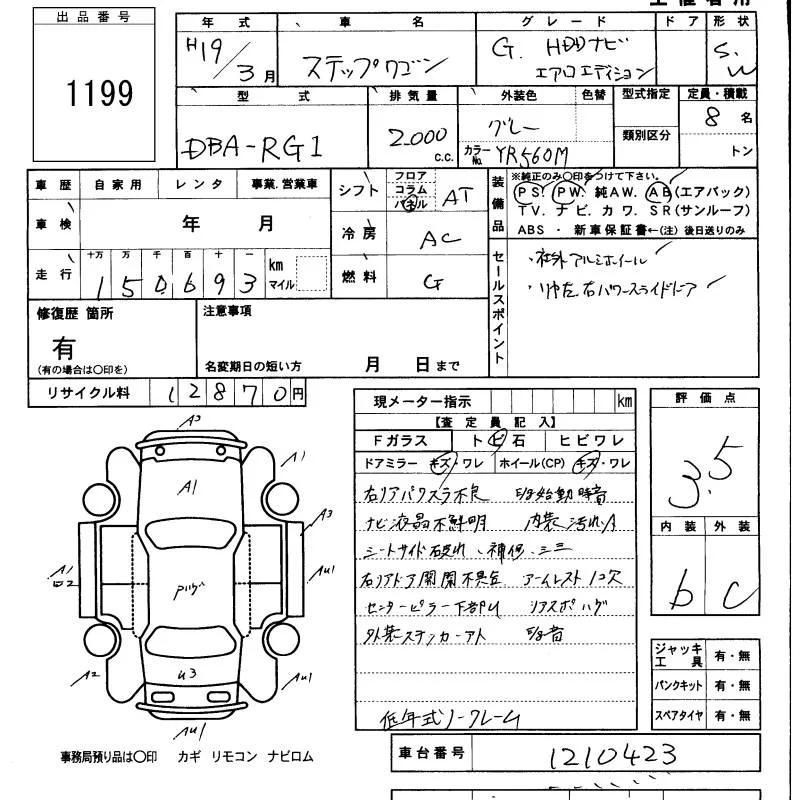 出品番号
1199
年式 車名 グレード ドア 形状
H19/3月 ステップワゴン G. HDDナビ エアロエディション S.W
型式 排気量 外装色 色替 型式指定 定員・積載
DBA-RG1 2.000 c.c. グレー カラーNo. YR560M 類別区分 8名 トン
車歴 自家用 レンタ 事業.営業車
シフト フロア コラム パネル AT
装備品 ※純正のみ〇印をつけて下さい。
PS. PW. 純AW. AB(エアバック)
TV. ナビ. カワ. SR(サンルーフ)
ABS ・ 新車保証書←(注) 後日送りのみ
車検 年 月
冷房 AC
走行 十万 万 千 百 十 一 km マイル
150693
燃料 G
セールスポイント
・社外アルミホイール
左右パワースライドドア
修復歴 箇所
有
(有の場合は〇印を)
注意事項
名変期日の短い方 月 日まで
リサイクル料 12870円
現メーター指示 km
【査定員記入】
Fガラス トビ石 ヒビワレ
ドアミラー キズ・ワレ ホイール(CP) キズ・ワレ
右リアパワスラ不良 始動時音
ナビ液晶不鮮明 内装汚れ.A
シートサイド破れ、補修、シミ
右リアドア開閉不具合 アームレスト1コ欠
センターピラー下部U リアスポハゲ
外装ステッカーアト 音
低年式ノークレーム
評価点
3.5
内装 外装
b C
ジャッキ工具 有・無
パンクキット 有・無
スペアタイヤ 有・無
A3
A1
A1
A3
A1
AU1
A2
U3
AU1
AU1
事務局預り品は〇印 カギ リモコン ナビロム
車台番号 1210423